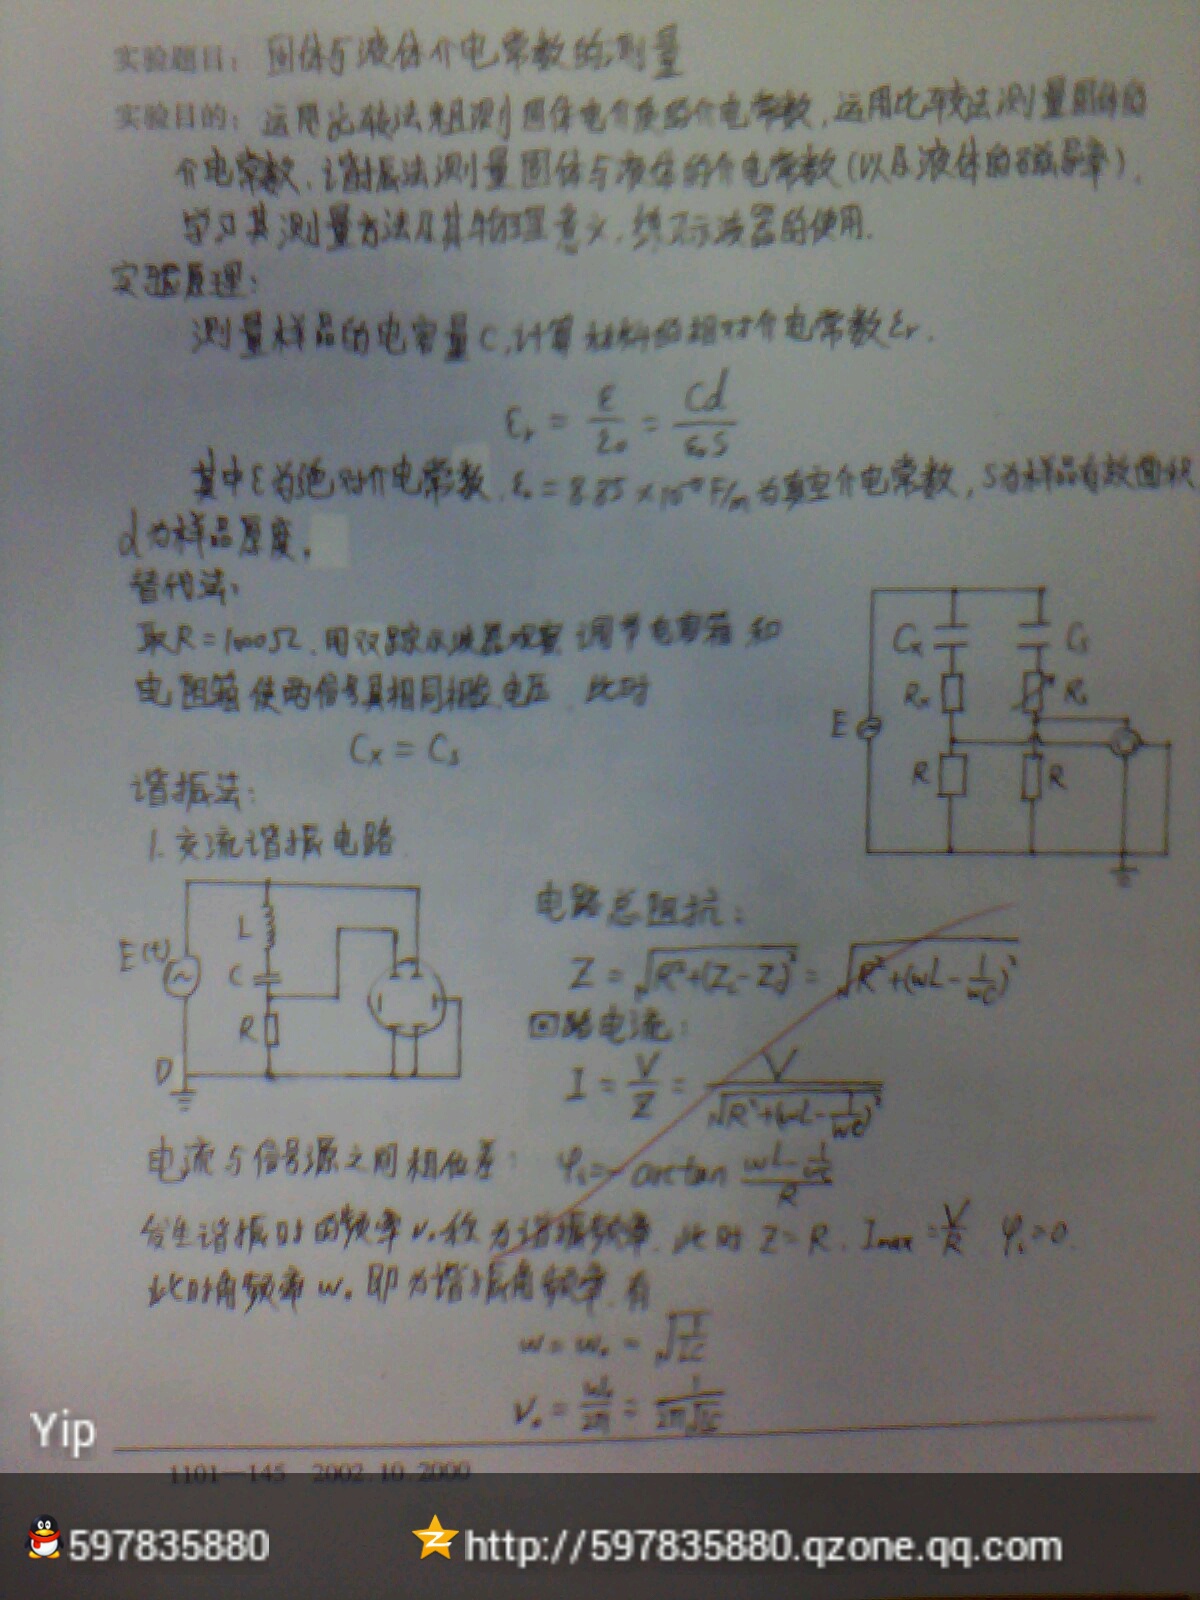 实验题目：固体与液体介电常数的测量
实验目的：运用比较法粗测固体电介质的介电常数，运用比较法测量固体的
介电常数，谐振法测量固体与液体的介电常数(以及液体的磁导率)，
学习其测量方法及其物理意义，练习示波器的使用．
实验原理：
测量样品的电容量C，计算材料的相对介电常数εr．
εr = ε/ε₀ = Cd/ε₀S
其中ε为绝对介电常数，ε₀ = 8.85 × 10 F/m 为真空介电常数，S为样品有效面积
d为样品厚度．
替代法：
取R=1000Ω，用双踪示波器观察，调节电容箱和
电阻箱使两信号具相同相位、电压，此时
Cx = Cs
E
Cx
Cs
Rx
Rs
R
R
谐振法：
1. 交流谐振电路
E(t)
L
C
R
D
电路总阻抗：
Z = √(R²+(ZL-Zc)²) = √(R²+(wL-1/wC)²)
回路电流：
I = V/Z = V/√(R²+(wL-1/wC)²)
电流与信号源之间相位差：φi = -arctan (wL-1/wC)/R
发生谐振时的频率ν₀称为谐振频率，此时 Z=R，Imax=V/R，φi=0．
此时角频率w₀即为谐振角频率，有
w = w₀ = √(1/LC)
ν₀ = w₀/2π = 1/2π√LC
Yip
1101—145 2002.10.2000
597835880
http://597835880.qzone.qq.com